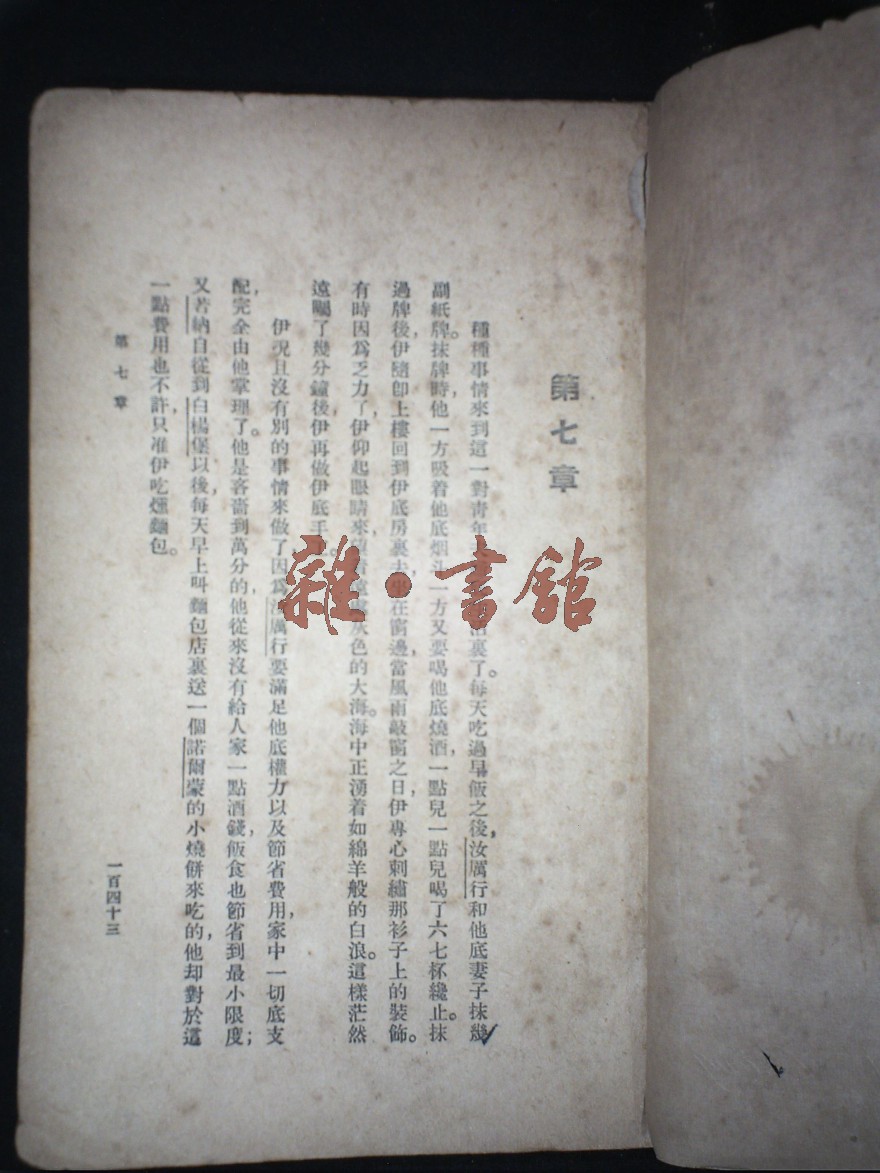 第七章
種種事情來到這一對青年裏了。每天吃過早飯之後，汝厲行和他底妻子抹幾
副紙牌。抹牌時，他一方吸着他底烟斗，一方又要喝他底燒酒，一點兒一點兒喝了六七杯纔止。抹
過牌後，伊隨卽上樓回到伊底房裏去，坐在窗邊，當風雨敲窗之日，伊專心刺繡那衫子上的裝飾。
有時因爲乏力了，伊仰起眼睛來，望着遠處灰色的大海。海中正湧着如綿羊般的白浪。這樣茫然
遠矚了幾分鐘後，伊再做伊底手工。
伊況且沒有別的事情來做了，因爲汝厲行要滿足他底權力以及節省費用，家中一切底支
配，完全由他掌理了。他是吝嗇到萬分的，他從來沒有給人家一點酒錢，飯食也節省到最小限度；
又若納自從到白楊堡以後，每天早上叫麵包店裏送一個諾爾蒙的小燒餅來吃的，他却對於這
一點費用也不許，只准伊吃燻麵包。
第七章
一百四十三
雜·書館